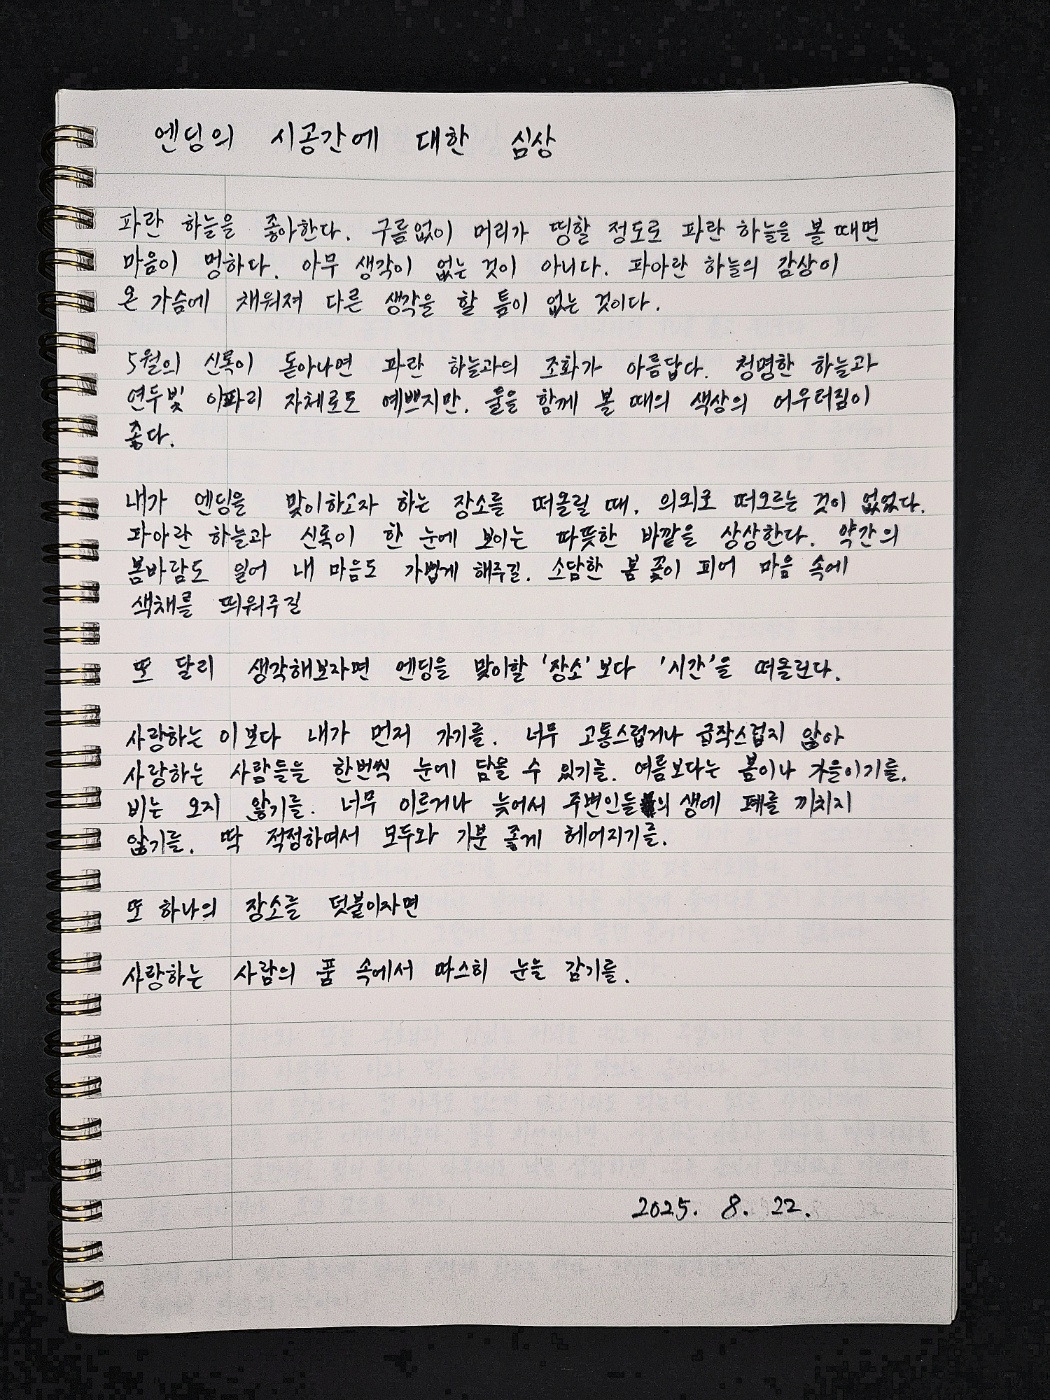 엔딩의 시공간에 대한 심상
파란 하늘을 좋아한다. 구름없이 머리가 띵할 정도로 파란 하늘을 볼 때면
마음이 멍하다. 아무 생각이 없는 것이 아니다. 파아란 하늘의 감상이
온 가슴에 채워져 다른 생각을 할 틈이 없는 것이다.
5월의 신록이 돋아나면 파란 하늘과의 조화가 아름답다. 청명한 하늘과
연두빛 이파리 자체로도 예쁘지만, 둘을 함께 볼 때의 색상의 어우러짐이
좋다.
내가 엔딩을 맞이하고자 하는 장소를 떠올릴 때, 의외로 떠오르는 것이 없었다.
파아란 하늘과 신록이 한 눈에 보이는 따뜻한 바깥을 상상한다. 약간의
봄바람도 일어 내 마음도 가볍게 해주길. 소담한 봄 꽃이 피어 마음 속에
색채를 띄워주길
또 달리 생각해보자면 엔딩을 맞이할 '장소'보다 '시간'을 떠올린다.
사랑하는 이보다 내가 먼저 가기를. 너무 고통스럽거나 급작스럽지 않아
사랑하는 사람들을 한번씩 눈에 담을 수 있기를. 여름보다는 봄이나 가을이기를.
비는 오지 않기를. 너무 이르거나 늦어서 주변인들의 생에 폐를 끼치지
않기를. 딱 적정하여서 모두와 기분 좋게 헤어지기를.
또 하나의 장소를 덧붙이자면
사랑하는 사람의 품 속에서 따스히 눈을 감기를.
2025. 8. 22.